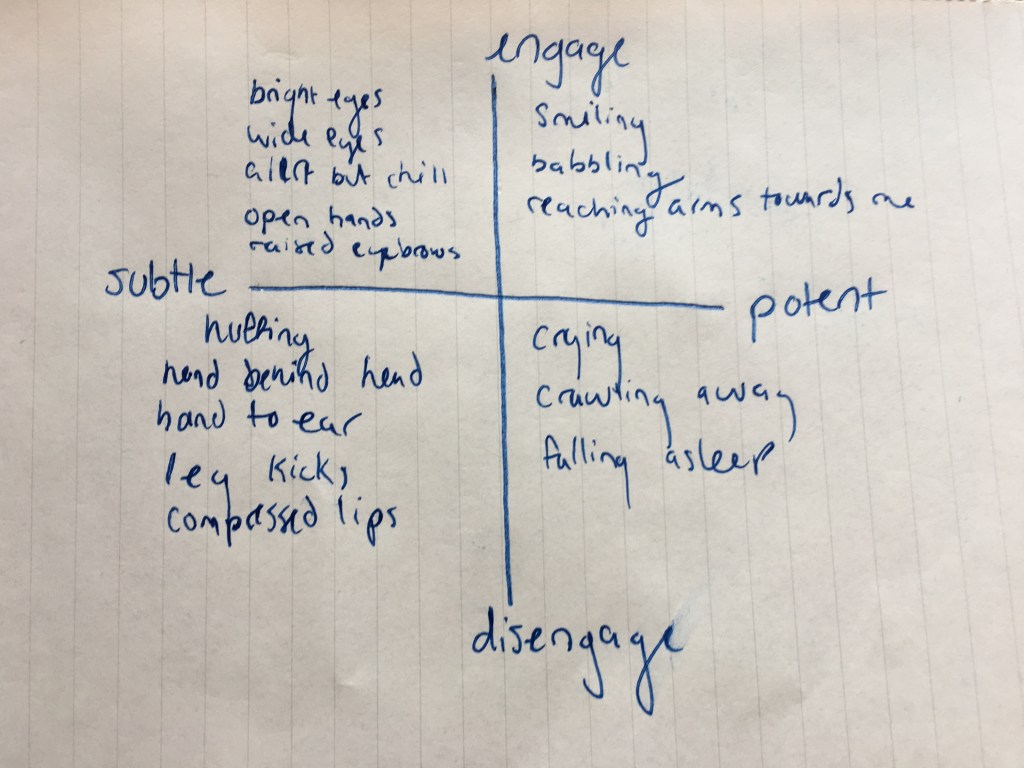 engage
bright eyes
wide eyes
alert but chill
open hands
raised eyebrows
smiling
babbling
reaching arms towards me
subtle
potent
huffing
hand behind head
hand to ear
leg kicks
compressed lips
crying
crawling away
falling asleep
disengage